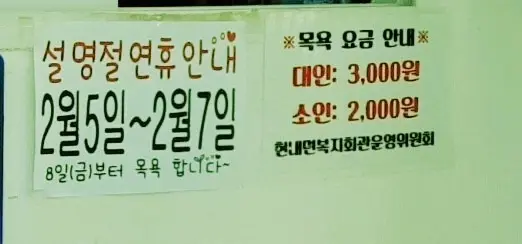 설 명절 연휴 안내
2월5일~2월7일
8일(금)부터 목욕 합니다~
※목욕 요금 안내※
대인: 3,000원
소인: 2,000원
현내면복지회관운영위원회